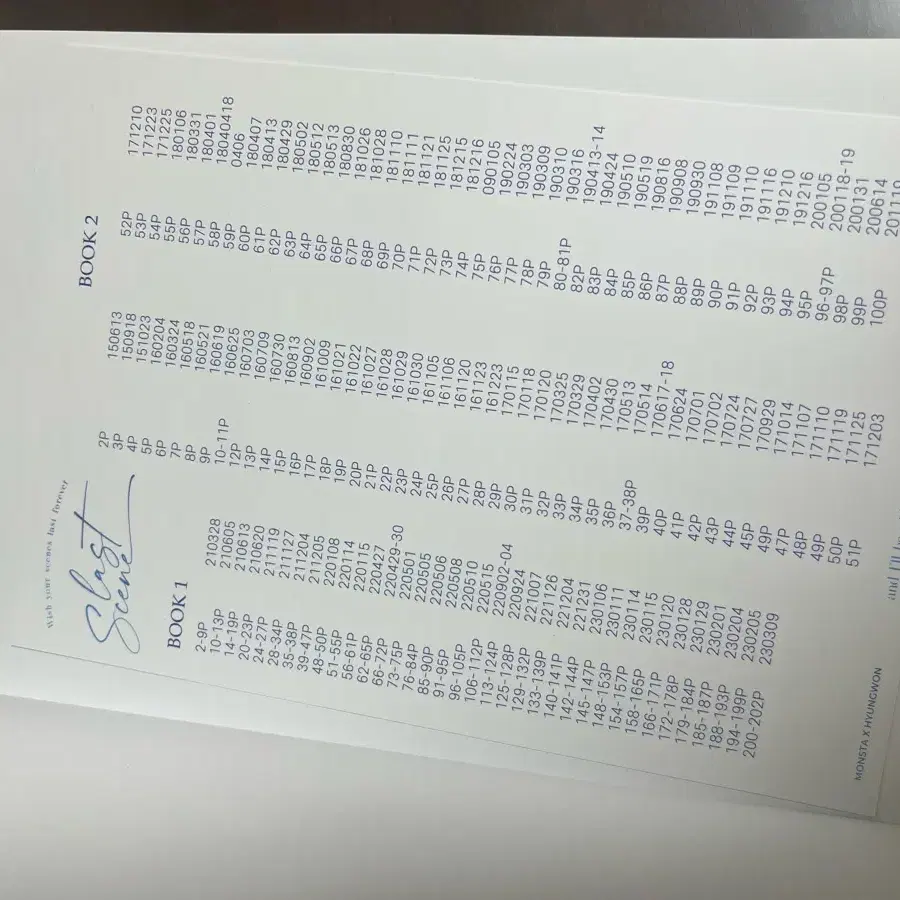 Wish your scenes last forever
Last
Scene
BOOK 1
2-9P 210328
10-13P 210605
14-19P 210613
20-23P 210620
24-27P 211119
28-34P 211127
35-38P 211204
39-47P 211205
48-50P 220108
51-55P 220114
56-61P 220115
62-65P 220427
66-72P 220429-30
73-75P 220501
76-84P 220505
85-90P 220506
91-95P 220508
96-105P 220510
106-112P 220515
113-124P 220902-04
125-128P 220924
129-132P 221007
133-139P 221126
140-141P 221204
142-144P 221231
145-147P 230106
148-153P 230111
154-157P 230114
158-165P 230115
166-171P 230120
172-178P 230128
179-184P 230129
185-187P 230201
188-193P 230204
194-199P 230205
200-202P 230309
BOOK 2
2P 150613
3P 150918
4P 151023
5P 160204
6P 160324
7P 160518
8P 160521
9P 160619
10-11P 160625
12P 160703
13P 160709
14P 160730
15P 160813
16P 160902
17P 161009
18P 161021
19P 161022
20P 161027
21P 161028
22P 161029
23P 161030
24P 161105
25P 161106
26P 161120
27P 161123
28P 161223
29P 170115
30P 170118
31P 170120
32P 170325
33P 170329
34P 170402
35P 170430
36P 170513
37-38P 170514
39P 170617-18
40P 170624
41P 170701
42P 170702
43P 170724
44P 170727
45P 170929
49P 171014
47P 171107
48P 171110
49P 171119
50P 171125
51P 171203
52P 171210
53P 171223
54P 171225
55P 180106
56P 180331
57P 180401
58P 18040418
59P 0406
60P 180407
61P 180413
62P 180429
63P 180502
64P 180512
65P 180513
66P 180830
67P 181026
68P 181028
69P 181110
70P 181111
71P 181121
72P 181125
73P 181215
74P 181216
75P 090105
76P 190224
77P 190303
78P 190309
79P 190310
80-81P 190316
82P 190413-14
83P 190424
84P 190510
85P 190519
86P 190816
87P 190908
88P 190930
89P 191108
90P 191109
91P 191110
92P 191116
93P 191210
94P 191216
95P 200105
96-97P 200118-19
98P 200131
99P 200614
100P
MONSTA X HYUNGWON
and